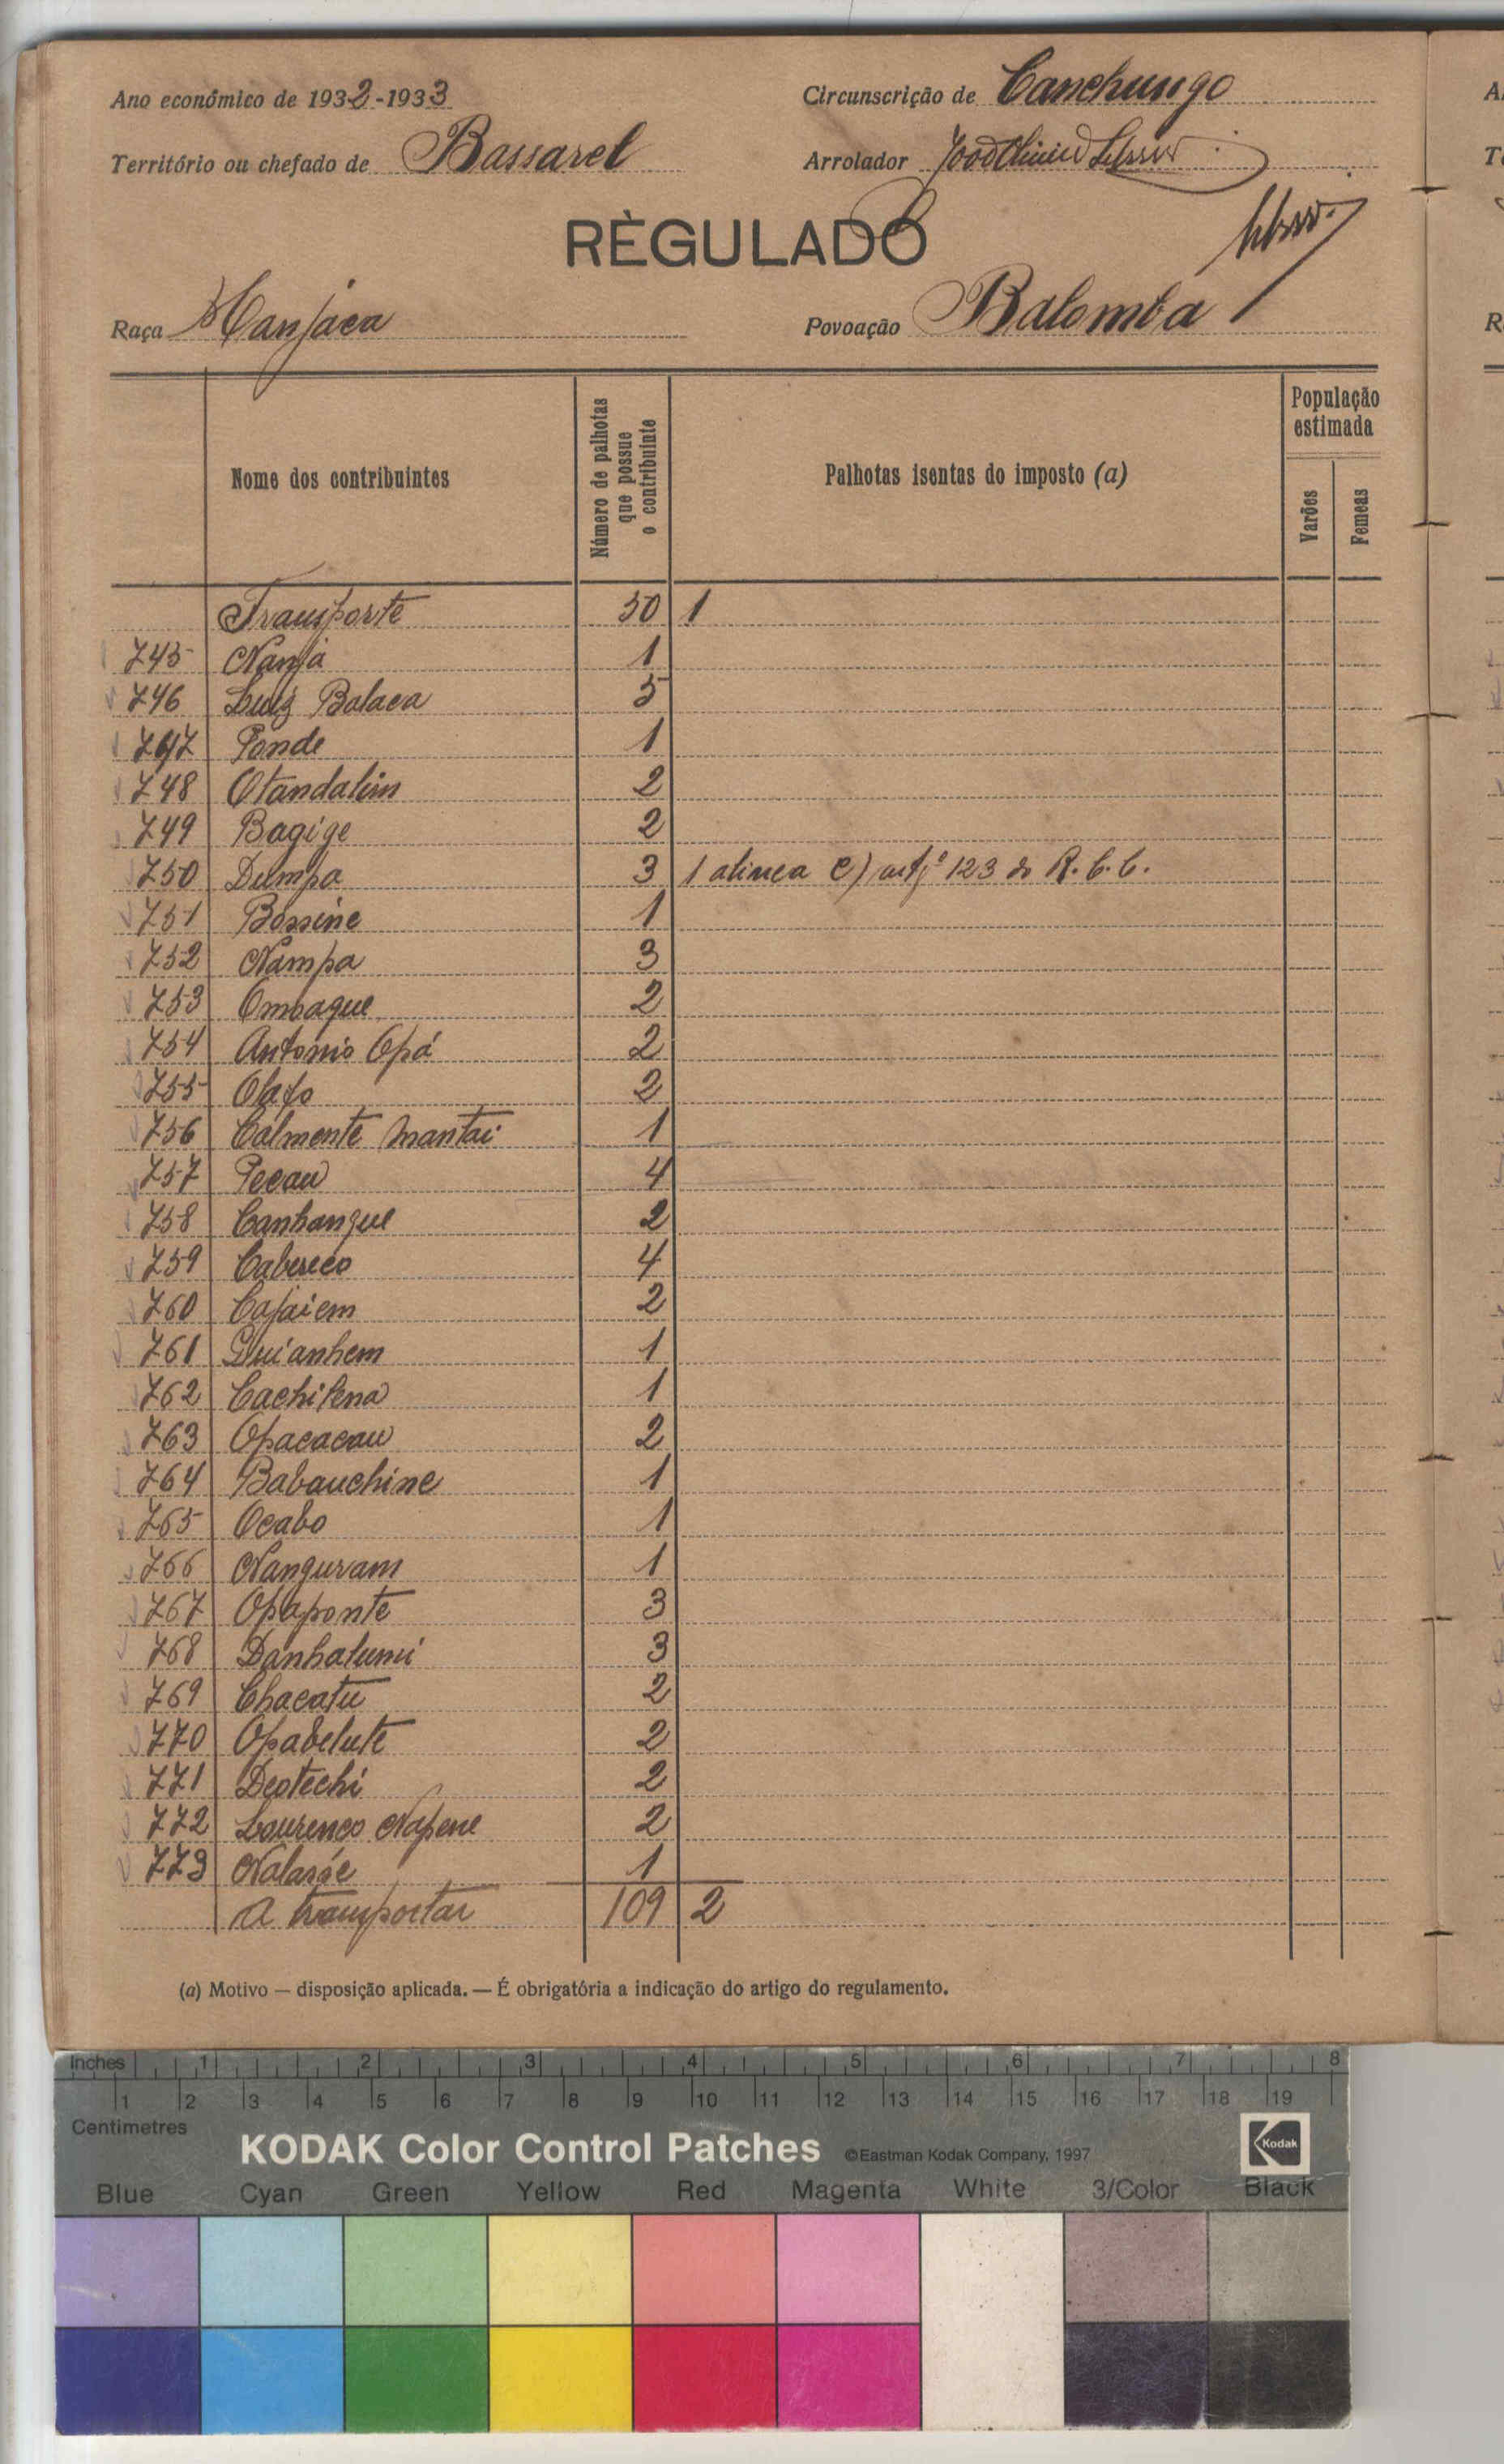 Ano económico de 1932-1933
Circunscrição de Canchungo
Território ou chefado de Bassarel
Arrolador
RÈGULADO
Raça Manjaca
Povoação Balomba
Nome dos contribuintes
Número de palhotas que possue o contribuinte
Palhotas isentas do imposto (a)
População estimada
Varões
Femeas
Transporte 50 1
745 Nanja 1
746 Luiz Balaca 5
747 Ponde 1
748 Otandalim 2
749 Bagige 2
750 Dumpa 3 1 alinea e) artº 123 do R.C.C.
751 Bossine 1
752 Nampa 3
753 Ombaque 2
754 Antonio Opá 2
755 Olafo 2
756 Calmente Mantai 1
757 Pecau 4
758 Canhanque 2
759 Cabereco 4
760 Cajaiem 2
761 Quianhem 1
762 Cachilena 1
763 Opacacau 2
764 Babauchine 1
765 Ocabo 1
766 Nanguram 1
767 Opaponte 3
768 Danhalumi 3
769 Chacatu 2
770 Opabelute 2
771 Deotechi 2
772 Lourenco Napene 2
773 Nalasóe 1
A transportar 109 2
(a) Motivo — disposição aplicada. — É obrigatória a indicação do artigo do regulamento.
Inches 1 2 3 4 5 6 7 8
1 2 3 4 5 6 7 8 9 10 11 12 13 14 15 16 17 18 19
Centimetres
KODAK Color Control Patches ©Eastman Kodak Company, 1997 Kodak
Blue Cyan Green Yellow Red Magenta White 3/Color Black